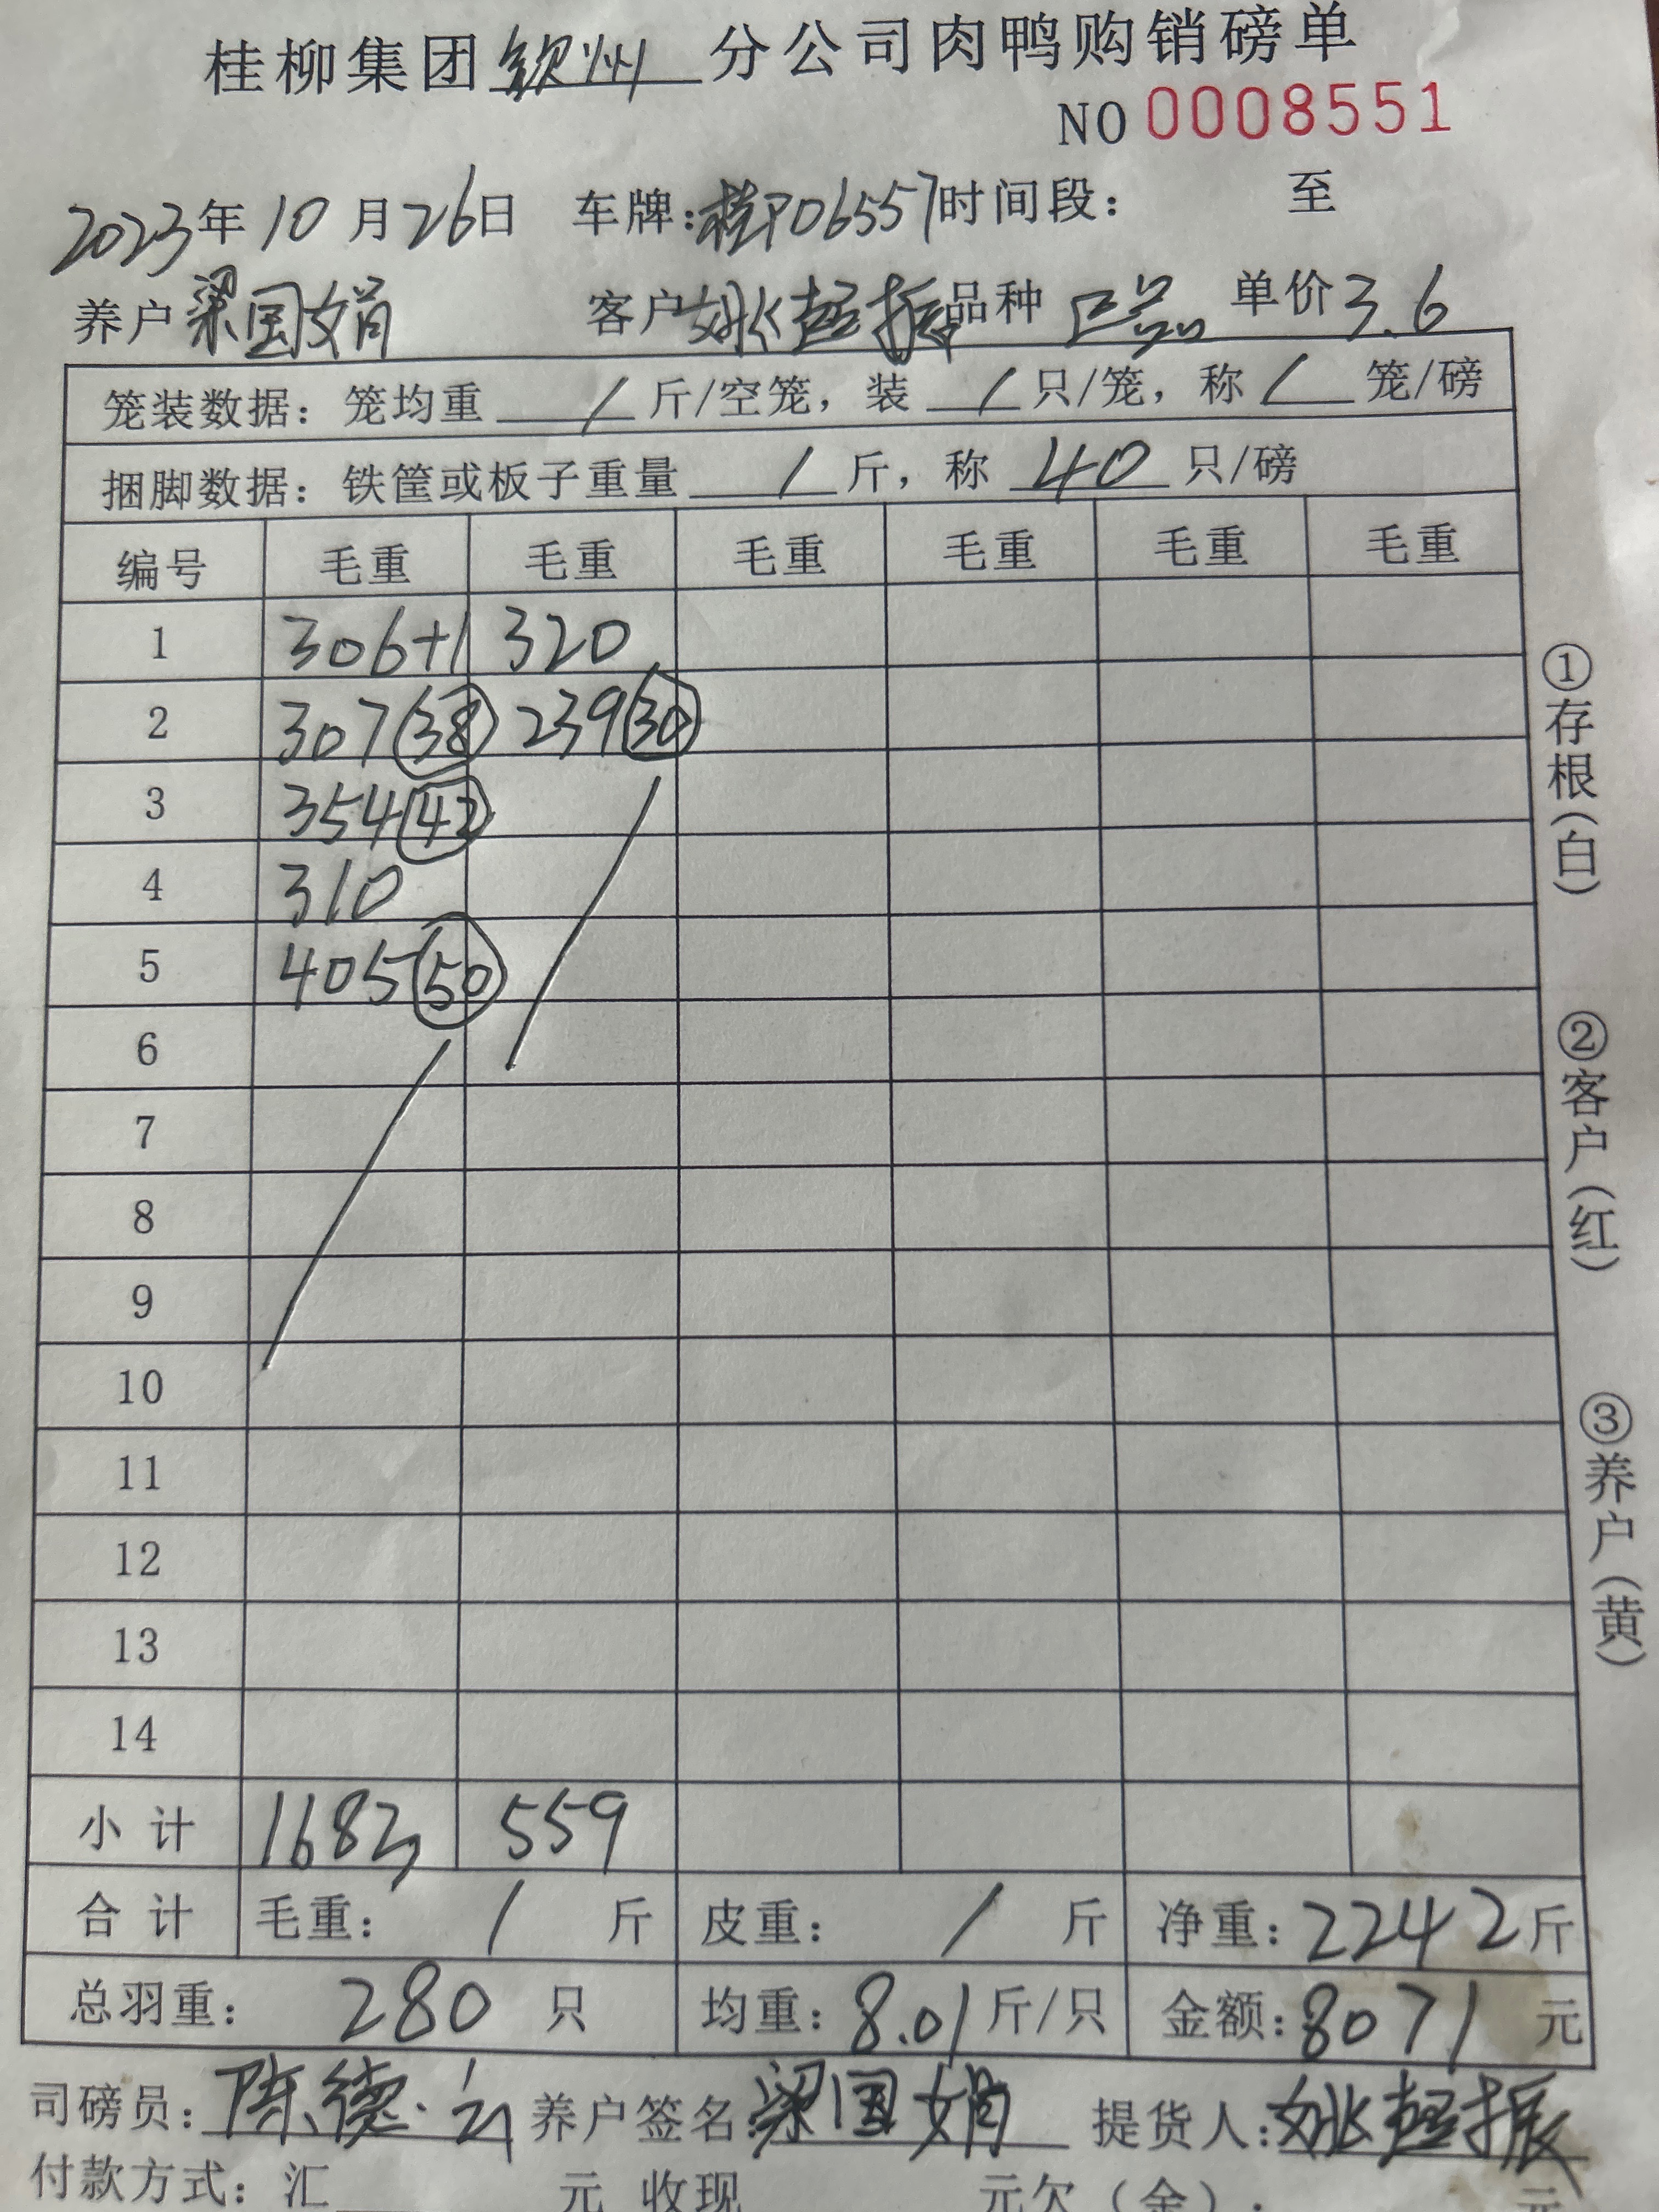 桂柳集团钦州分公司肉鸭购销磅单
NO 0008551
2023年10月26日 车牌:桂P06557 时间段: 至
养户 梁国娟 客户 姚超振 品种 巳品 单价 3.6
笼装数据: 笼均重 / 斤/空笼, 装 / 只/笼, 称 / 笼/磅
捆脚数据: 铁筐或板子重量 / 斤, 称 40 只/磅
编号 毛重 毛重 毛重 毛重 毛重 毛重
1 306+1 320
2 307(38) 239(30)
3 354(42)
4 310
5 405(50)
6
7
8
9
10
11
12
13
14
小计 1683 559
合计 毛重: / 斤 皮重: / 斤 净重: 2242 斤
总羽重: 280 只 均重: 8.01 斤/只 金额: 8071 元
司磅员: 陈德 养户签名 梁国娟 提货人: 姚超振
付款方式: 汇 元 收现 元欠(金): 元
①存根(白)
②客户(红)
③养户(黄)